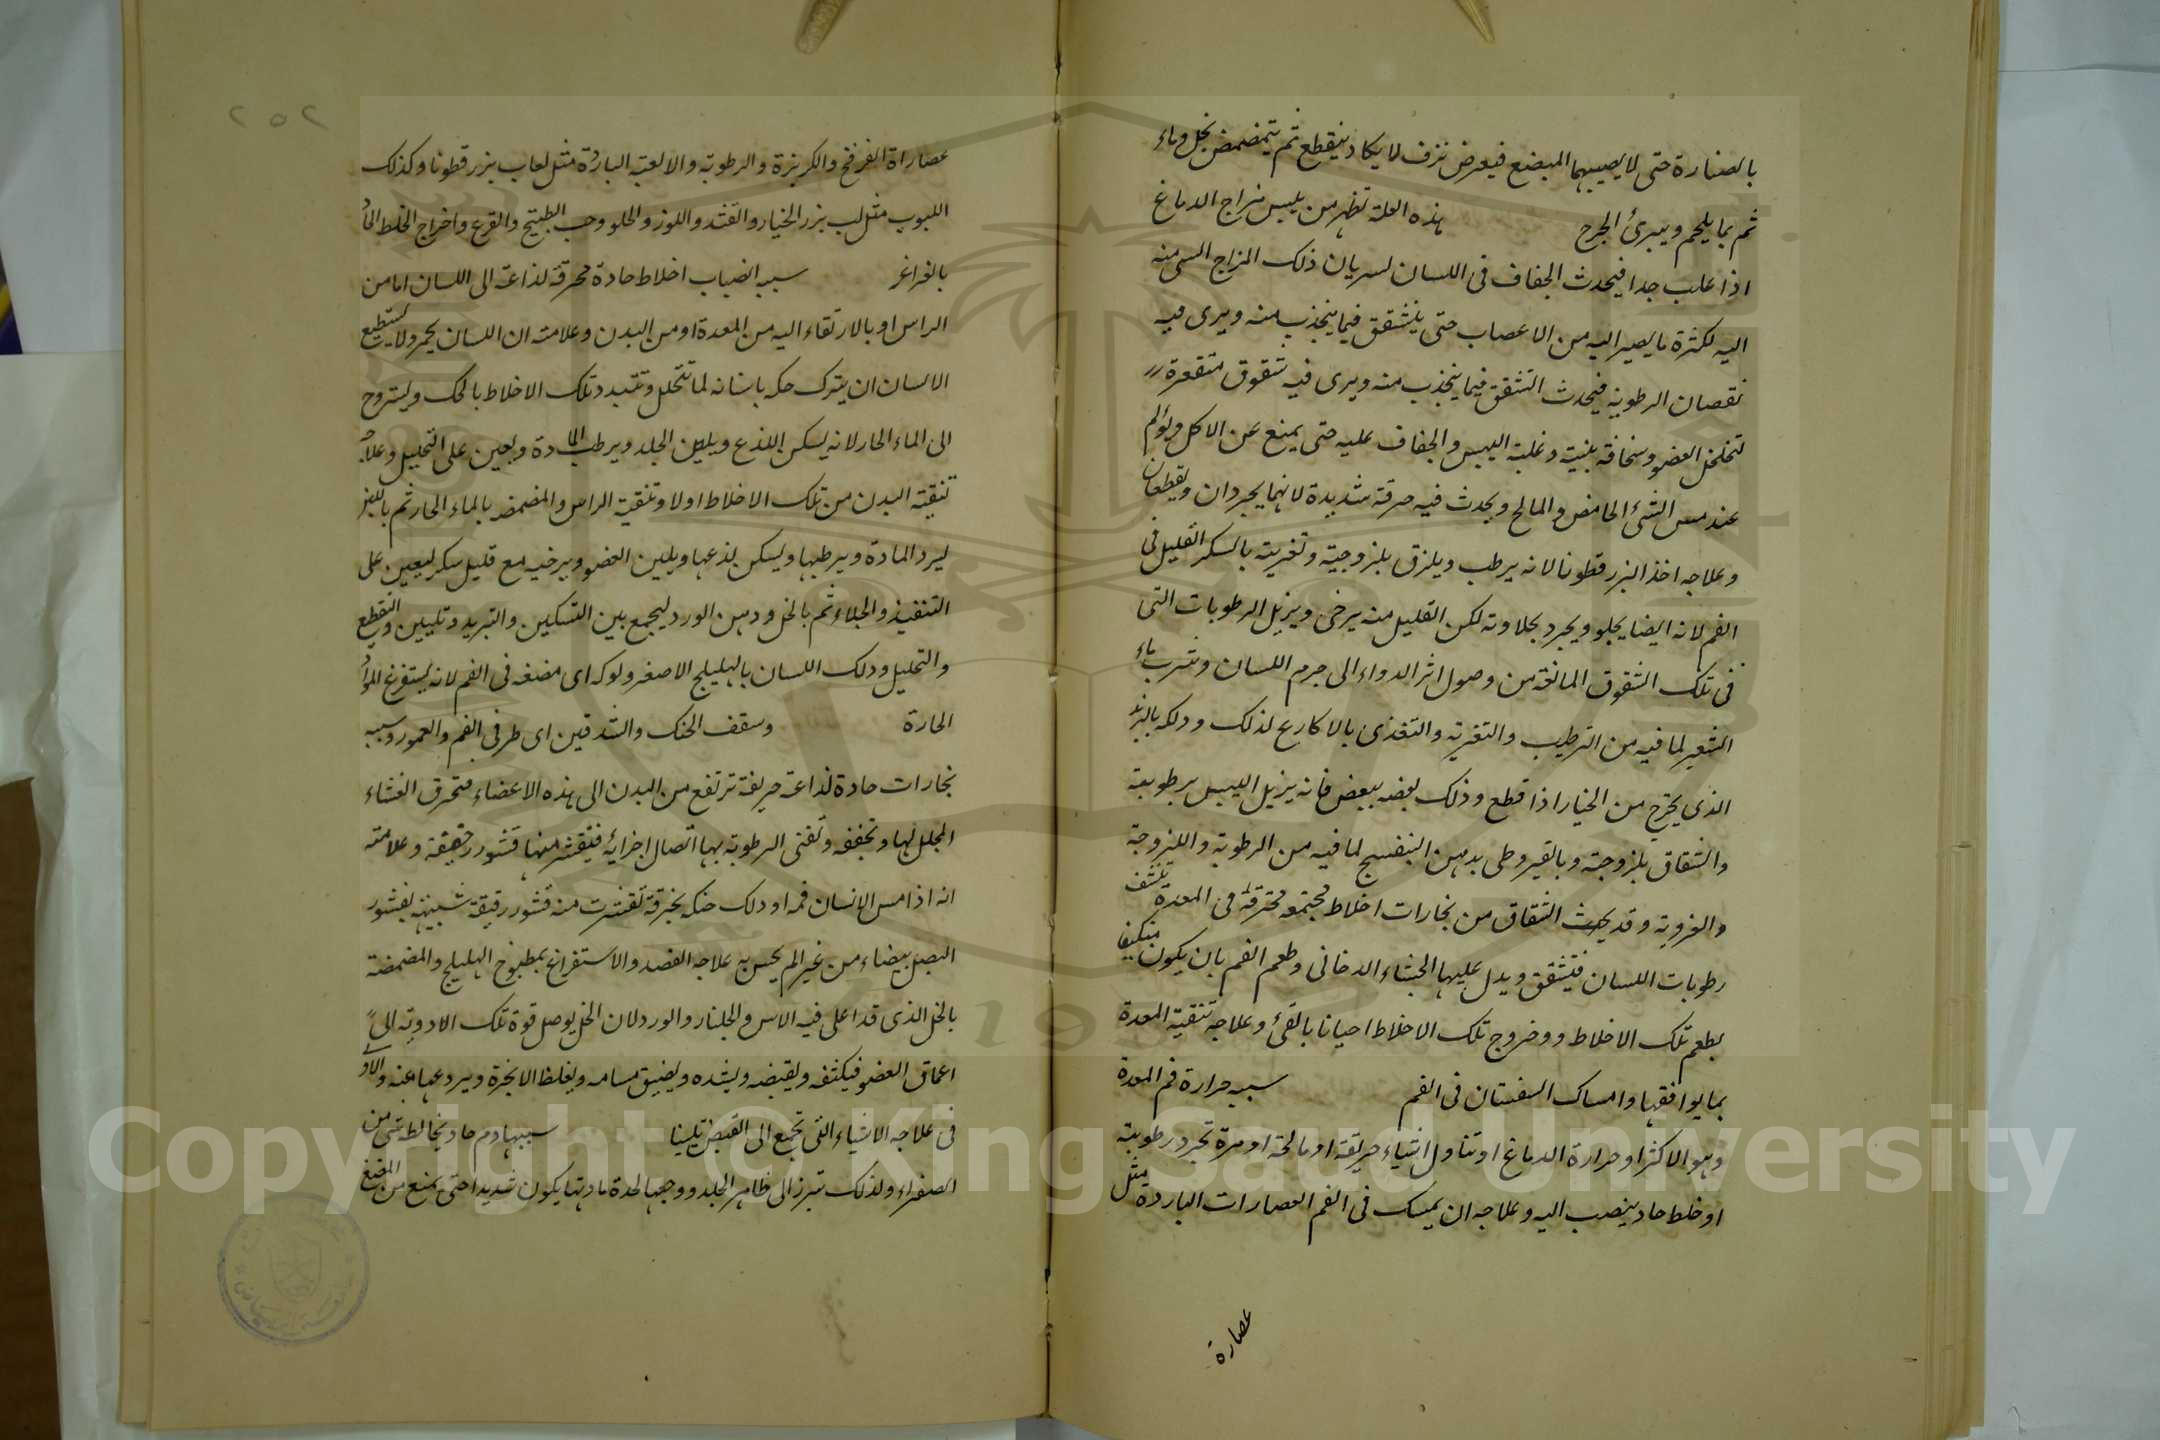 بالصنارة حتى لا يصيبها المبضع فيعرض نزف لا يكاد ينقطع ثم يتمضمض بخل وماء
ثم بما يلحم ويبرئ الجرح هذه العلة تظهر من يبس مزاج الدماغ
اذا غلب جدا فيحدث الجفاف فى اللسان لسريان ذلك المزاج السئ منه
اليه لكثرة ما يصير اليه من الاعصاب حتى يتشقق فيما ينجذب منه ويرى فيه
نقصان الرطوبة فيحدث التشقق فيما ينجذب منه ويرى فيه شقوق متقعرة
لتخلخل العضو وسخافة بنيته وغلبة اليبس والجفاف عليه حتى يمنع عن الاكل ويؤلم
عند مس الشئ الحامض والمالح ويحدث فيه حرقة شديدة لانهما يجردان ويقطعان
وعلاجه اخذ البزرقطونا لانه يرطب ويلزق بلزوجته وتغريته بالسكر القليل فى
الفم لانه ايضا يجلو ويجرد بحلاوته لكن القليل منه يرخى ويزيل الرطوبات التى
فى تلك الشقوق المانعة من وصول اثر الدواء الى جرم اللسان وشرب ماء
الشعير لما فيه من الترطيب والتغرية والتغذى بالاكارع لذلك ودلكه بالزبد
الذى يخرج من الخيار اذا قطع وذلك بعضه ببعض فانه يزيل اليبس برطوبته
والشقاق بلزوجته وبالقيروطى بدهن البنفسج لما فيه من الرطوبة واللزوجة
والغروية وقد يحدث الشقاق من بخارات اخلاط مجتمعة محترقة فى المعدة تنشف
رطوبات اللسان فيتشقق ويدل عليها الجشاء الدخانى وطعم الفم بان يكون متكيفا
بطعم تلك الاخلاط ووخروج تلك الاخلاط احيانا بالقئ وعلاجه تنقية المعدة
بما يوافقها وامساك السفستان فى الفم سببه حرارة فم المعدة
وهو الاكثر او حرارة الدماغ او تناول اشياء حريفة او مالحة او مرة تجرد رطوبته
او خلط حاد ينصب اليه وعلاجه ان يمسك فى الفم العصارات الباردة مثل
عصارة
٢٥٢
عصاراة الفرفخ والكزبزة والرطوبة والالعبة الباردة مثل لعاب بزرقطونا وكذلك
اللبوب مثل لب بزر الخيار والقثد واللوز والحلو وحب البطيخ والقرع واخراج الخلط الحاد
بالغراغر سببه انصباب اخلاط حادة محرقة لذاعة الى اللسان اما من
الراس او بالارتقاء اليه من المعدة او من البدن وعلامته ان اللسان يحمر ولا يستطيع
الانسان ان يترك حكه باسنانه لما تتحلل وتتبدد تلك الاخلاط بالحك ويستروح
الى الماء الحار لانه يسكن اللذع ويلين الجلد ويرطب المادة ويعين على التحليل وعلاجه
تنقية البدن من تلك الاخلاط اولا وتنقية الراس والمضمضة بالماء الحار ثم باللبن
ليبرد المادة ويرطبها ويسكن لذعها ويلين العضو ويرخيه مع قليل سكر ليعين على
التنفيذ والجلاء ثم بالخل ودهن الورد ليجمع بين التسكين والتبريد وتليين والتقطيع
والتحليل ودلك اللسان بالهليلج الاصفر ولوكه اى مضغه فى الفم لانه يستفرغ المواد
الحارة وسقف الحنك والشدقين اى طرفى الفم والعمور وسببه
بخارات حادة لذاعة حريفة ترتفع من البدن الى هذه الاعضاء فتحرق الغشاء
المجلل لها وتجففه وتفنى الرطوبة بها اتصال اجزائه فيتقشر منها قشور رقيقة وعلامته
انه اذا مس الانسان فمه او دلك حنكه بخرقة تقشرت منه قشور رقيقة شبيهة بقشور
البصل بيضاء من غير الم يحس به علاجه الفصد والاستفراغ بمطبوخ الهليلج والمضمضة
بالخل الذى قد اغلى فيه الاس والجلنار والورد لان الخل يوصل قوة تلك الادوية الى
اعماق العضو فيكثفه ويقبضه ويشده ويضيق مسامه ويغلظ الابخرة ويردعها عنه
فى علاجه الاشياء التى تجمع الى القبض تليينا سببها دم حاد يخالطه شئ من
الصفراء ولذلك تبرز الى ظاهر الجلد ووجعها لحدة مادتها يكون شديدا حتى يمنع من المضغ
Copyright © King Saud University